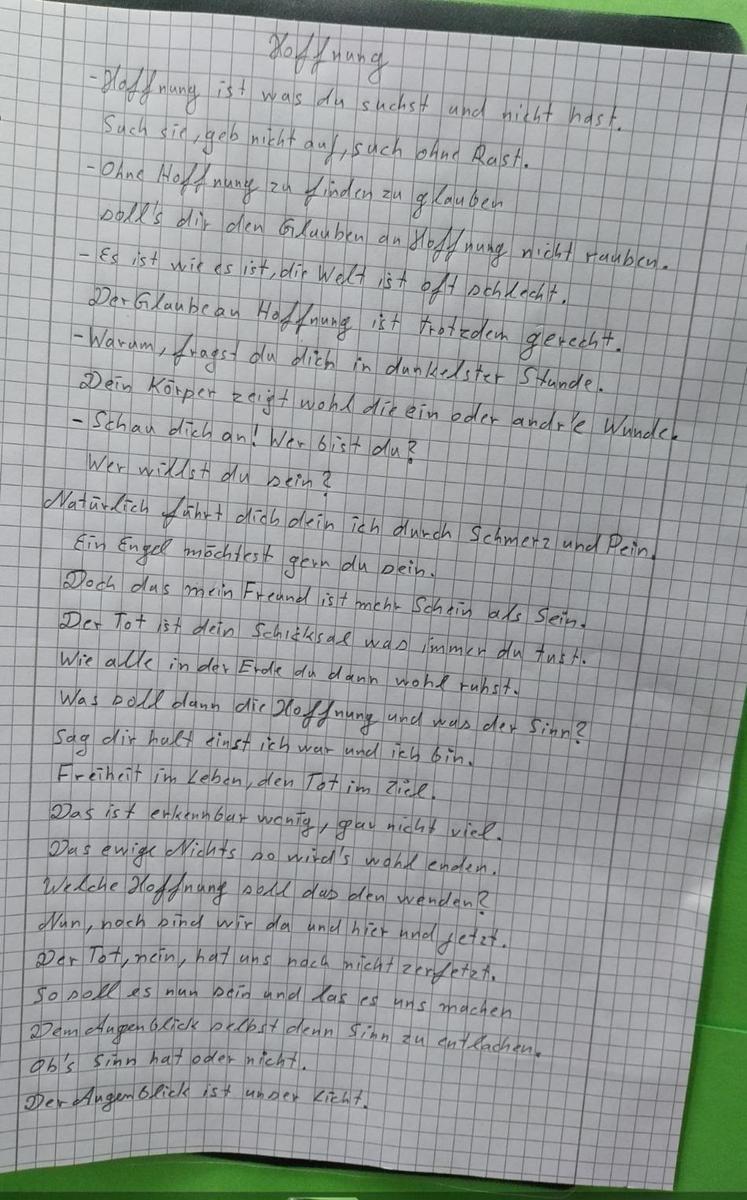 Hoffnung
- Hoffnung ist was du suchst und nicht hast.
Such sie, geb nicht auf, such ohne Rast.
- Ohne Hoffnung zu finden zu glauben
soll's dir den Glauben an Hoffnung nicht rauben.
- Es ist wie es ist, die Welt ist oft schlecht.
Der Glaube an Hoffnung ist trotzdem gerecht.
- Warum, fragst du dich in dunkelster Stunde.
Dein Körper zeigt wohl die ein oder andr'e Wunde.
- Schau dich an! Wer bist du?
Wer willst du sein?
Natürlich führt dich dein ich durch Schmerz und Pein.
Ein Engel möchtest gern du sein.
Doch das mein Freund ist mehr Schein als Sein.
Der Tot ist dein Schicksal was immer du tust.
Wie alle in der Erde du dann wohl ruhst.
Was soll dann die Hoffnung und was der Sinn?
Sag dir halt einst ich war und ich bin.
Freiheit im Leben, den Tot im Ziel.
Das ist erkennbar wenig, gar nicht viel.
Das ewige Nichts so wird's wohl enden.
Welche Hoffnung soll das den wenden?
Nun, noch sind wir da und hier und jetzt.
Der Tot, nein, hat uns noch nicht zerfetzt.
So soll es nun sein und las es uns machen
Dem Augenblick selbst denn Sinn zu entlachen.
Ob's Sinn hat oder nicht.
Der Augenblick ist unser Licht.